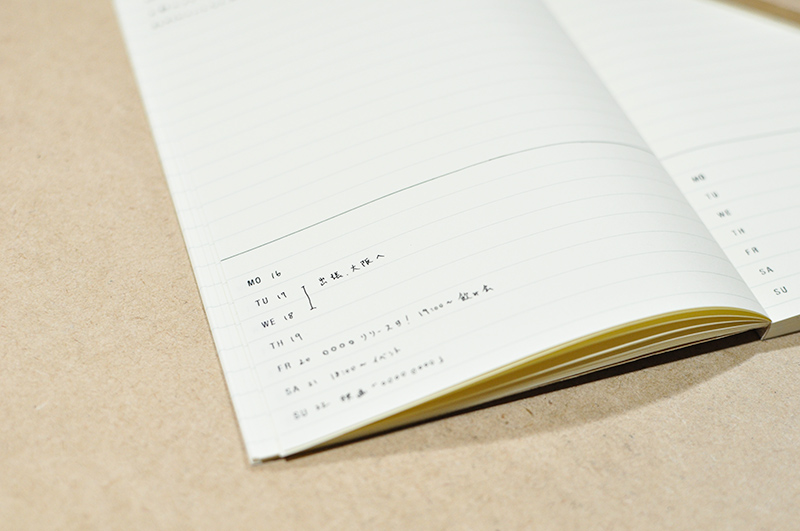 MO 16
TU 17
出張、大阪へ
WE 18
TH 19
FR 20 ○○○○ リリース日! 19:00〜 飲み会
SA 21 18:00〜 イベント
SU 22 映画「○○○○ ○○○○」
MO
TU
WE
TH
FR
SA
SU